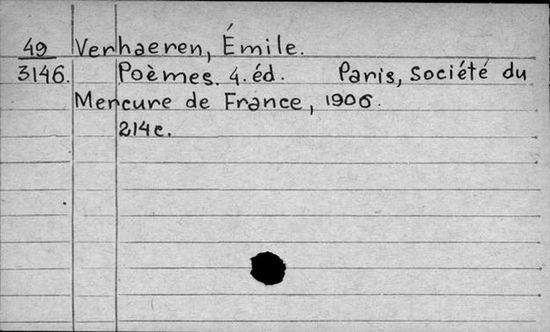 49 Verhaeren, Émile.
3146. Poèmes. 4. éd. Paris, Société du
Mercure de France, 1906.
214c.